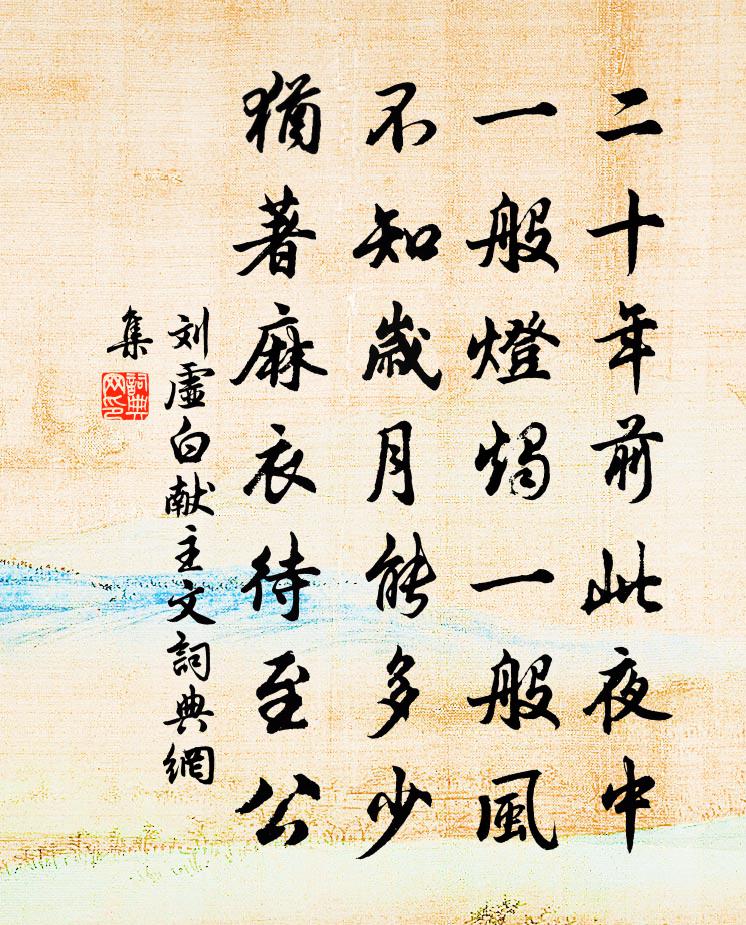 二十年前此夜中
一般燈燭一般風
不知歲月能多少
猶著麻衣待至公
刘虛白献主文詞典網
集
詞典網印